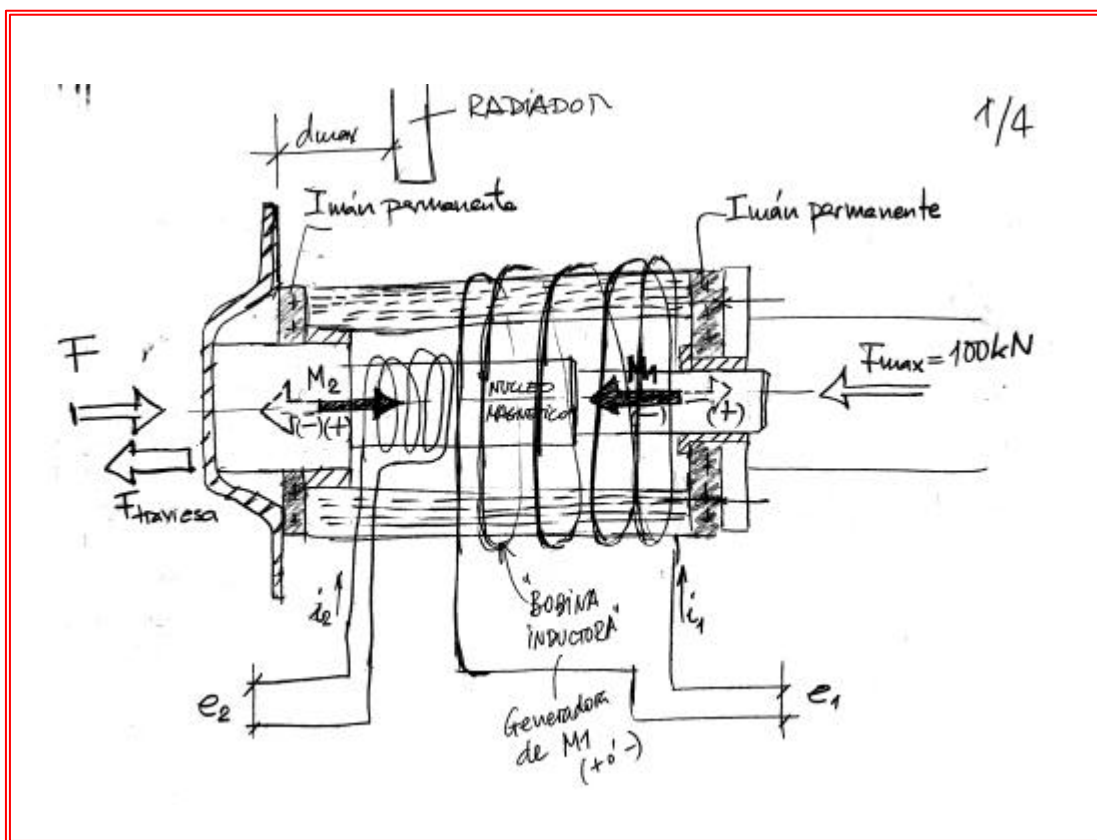 RADIADOR
1/4
dmax
Imán permanente
Imán permanente
F
Fmax = 100kN
M2
M1
NUCLEO
MAGNETICO
(-)(+)
(-)
(+)
Ftraviesa
i2
"BOBINA
INDUCTORA"
i1
e2
e1
Generadora
de M1
(+ ó -)